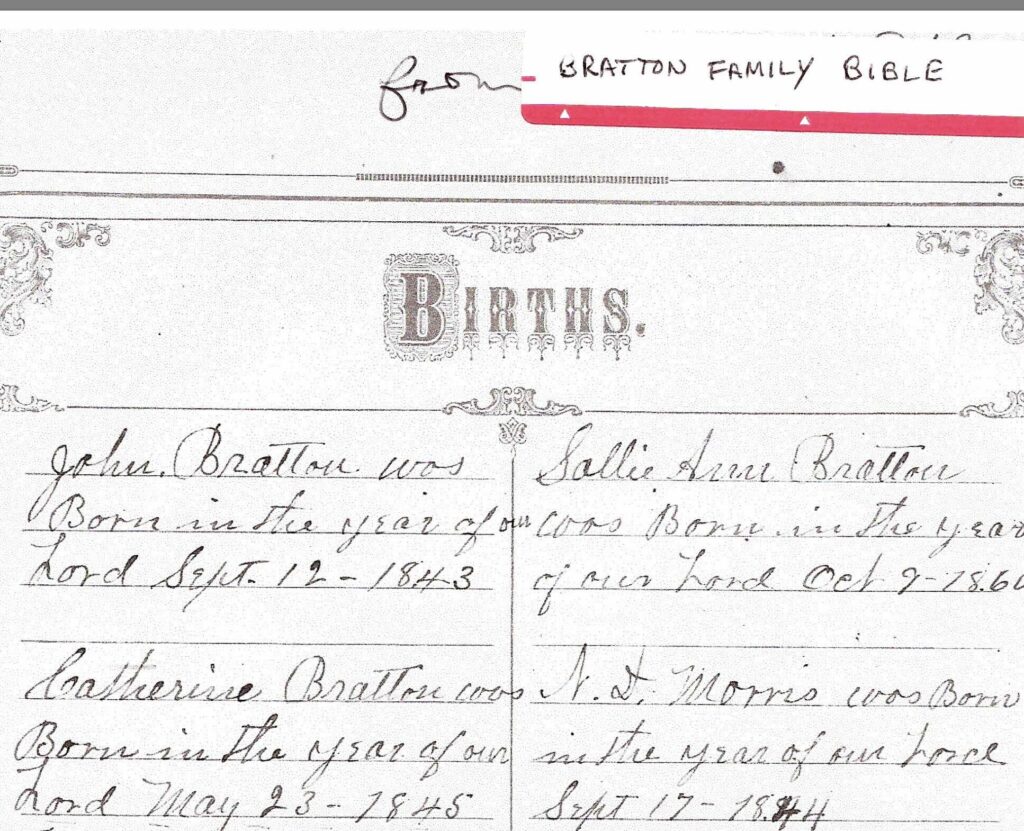 from
BRATTON FAMILY BIBLE
BIRTHS.
John. Bratton was
Born in the year of our
Lord Sept. 12 - 1843
Catherine Bratton was
Born in the year of our
Lord May 23 - 1845
Sallie Ann Bratton
was Born in the year
of our Lord Oct 9 - 1860
N. D. Morris was Born
in the year of our Lord
Sept 17 - 1844